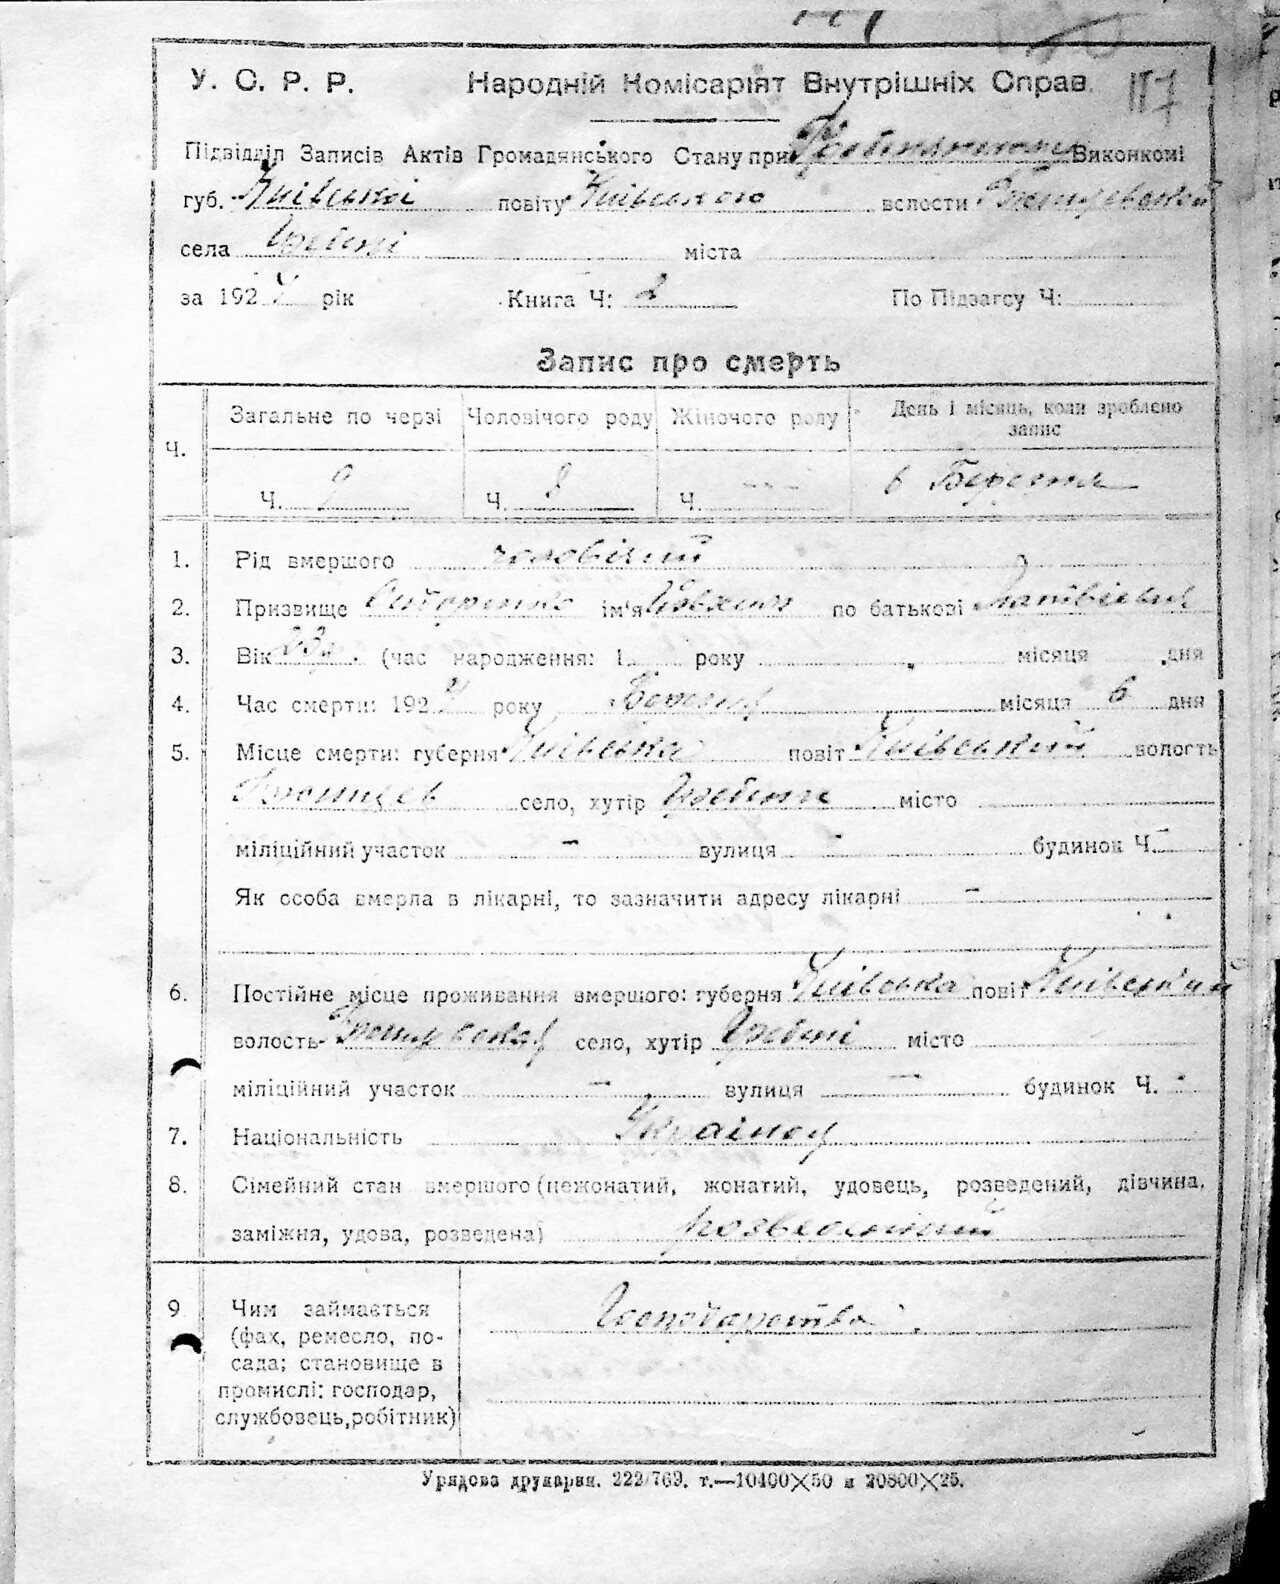 117
У. С. Р. Р. Народній Комісаріят Внутрішніх Справ.
Підвідділ Записів Актів Громадянського Стану при Виконкомі
губ. Київської повіту Київського волости
села Гребені міста
за 1924 рік Книга Ч: 2 По Підзагсу Ч:
Запис про смерть
Ч. Загальне по черзі Чоловічого роду Жіночого роду День і місяць, коли зроблено
запис
Ч. 9 Ч. 8 Ч. — 6 Березня
1. Рід вмершого чоловічий
2. Призвище Сидоренко ім'я по батькові Матвієвич
3. Вік 23р. (час народження: 1 року місяця дня
4. Час смерти: 1924 року Березня місяця 6 дня
5. Місце смерти: губерня Київська повіт Київський волость
село, хутір Гребени місто
міліційний участок – вулиця - будинок Ч. –
Як особа вмерла в лікарні, то зазначити адресу лікарні –
6. Постійне місце проживання вмершого: губерня Київська повіт Київський
волость село, хутір Гребені місто
міліційний участок — вулиця — будинок Ч. -
7. Національність Українец
8. Сімейний стан вмершого (нежонатий, жонатий, удовець, розведений, дівчина,
заміжня, удова, розведена)
9. Чим займається Господарством.
(фах, ремесло, по-
сада; становище в
промислі: господар,
службовець, робітник)
Урядова друкарня. 222/769. т.—10400×50 и 20800×25.